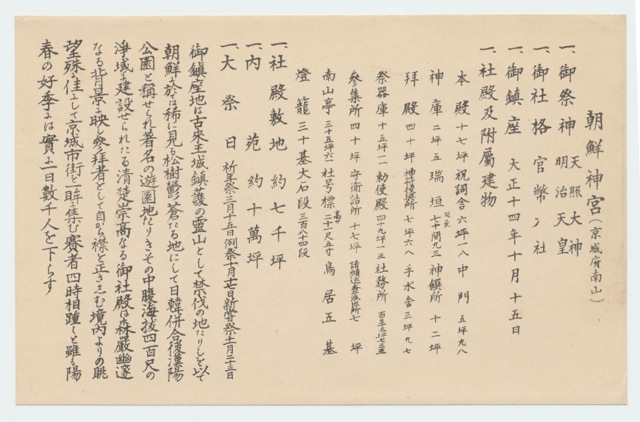 朝鮮神宮(京城府南山)
一、御祭神 天照大神 明治天皇
一、御社格 官幣大社
一、御鎮座 大正十四年十月十五日
一、社殿及附属建物
本殿 十七坪 祝詞舎 六坪一八 中門 五坪九八
神庫 二坪五 瑞垣 延長七十間九三 神饌所 十二坪
拝殿 四十坪 七坪六八 手水舎 三坪九七
祭器庫 十五坪二一 勅使殿 四十九坪一三 社務所
参集所 四十坪 守衛詰所 十七坪 七坪
南山亭 三十五坪六六 社号標 高サ二十一尺五寸 鳥居五基
燈籠 三十基 大石段 三百八十四段
一、社殿敷地 約七千坪
一、内苑 約十萬坪
一、大祭日 祈年祭三月十五日 例祭十月十七日 新嘗祭十一月二十三日
御鎮座地は古来王城鎮護の霊山として禁伐の地たりしを以て
朝鮮に於ては稀に見る松樹鬱蒼たる地にして日韓併合後漢陽
公園と稱せられ著名の遊園地たりきその中腹海抜四百尺の
浄域に建設せられたる清楚崇高なる御社殿は森厳幽邃
なる背景に映し参拝者をして自から襟を正さしむ境内よりの眺
望殊に佳よして京城市街を一眸に集む賽者四時相踵くと雖も陽
春の好季には實に一日數千人を下らず